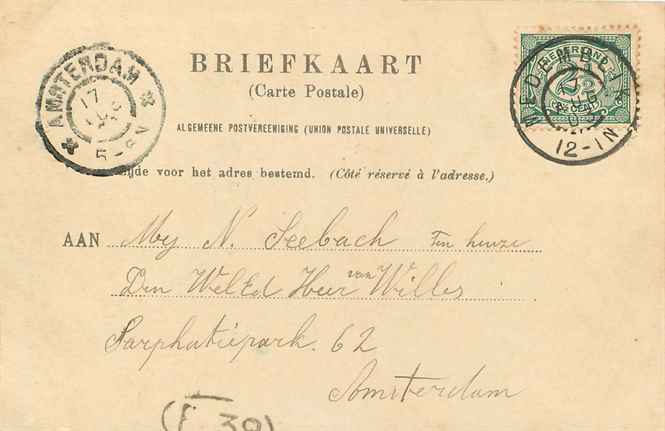 BRIEFKAART
(Carte Postale)
ALGEMEENE POSTVEREENIGING (UNION POSTALE UNIVERSELLE)
ijde voor het adres bestemd. (Côté réservé à l'adresse.)
AMSTERDAM
17
5-8V
NEDERLAND
2½
MEDEMBLIK
12-1N
AAN Mej N. Seebach Ten huize
Den WelEd Heer van Willes
Sarphatiepark. 62
Amsterdam
39)